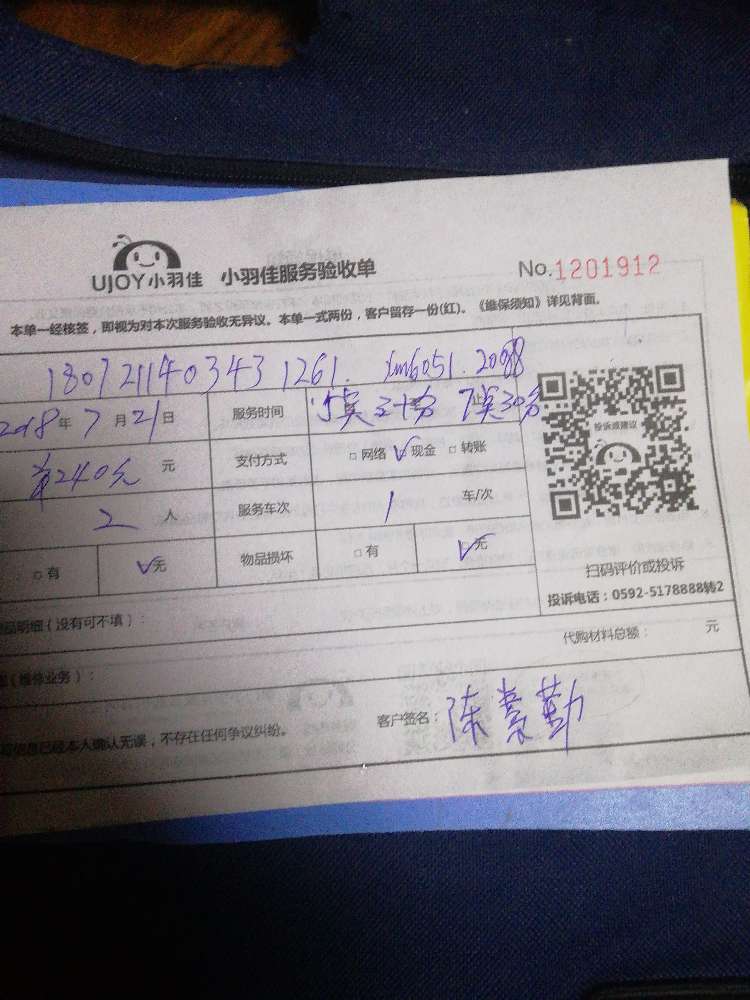 UJOY小羽佳 小羽佳服务验收单 No.1201912
本单一经核签，即视为对本次服务验收无异议。本单一式两份，客户留存一份(红)。《维保须知》详见背面。
180721140343 1261. xm6051.2088
2018年7月21日 服务时间 5点三十分 止 7点30分
240元 元 支付方式 □网络 √现金 □转账
2人 服务车次 1 车/次
□有 √无 物品损坏 □有 √无
投诉或建议
扫码评价或投诉
投诉电话：0592-5178888转2
品明细(没有可不填)：
代购材料总额： 元
(维修业务)：
信息已经本人确认无误，不存在任何争议纠纷。 客户签名：陈 勤